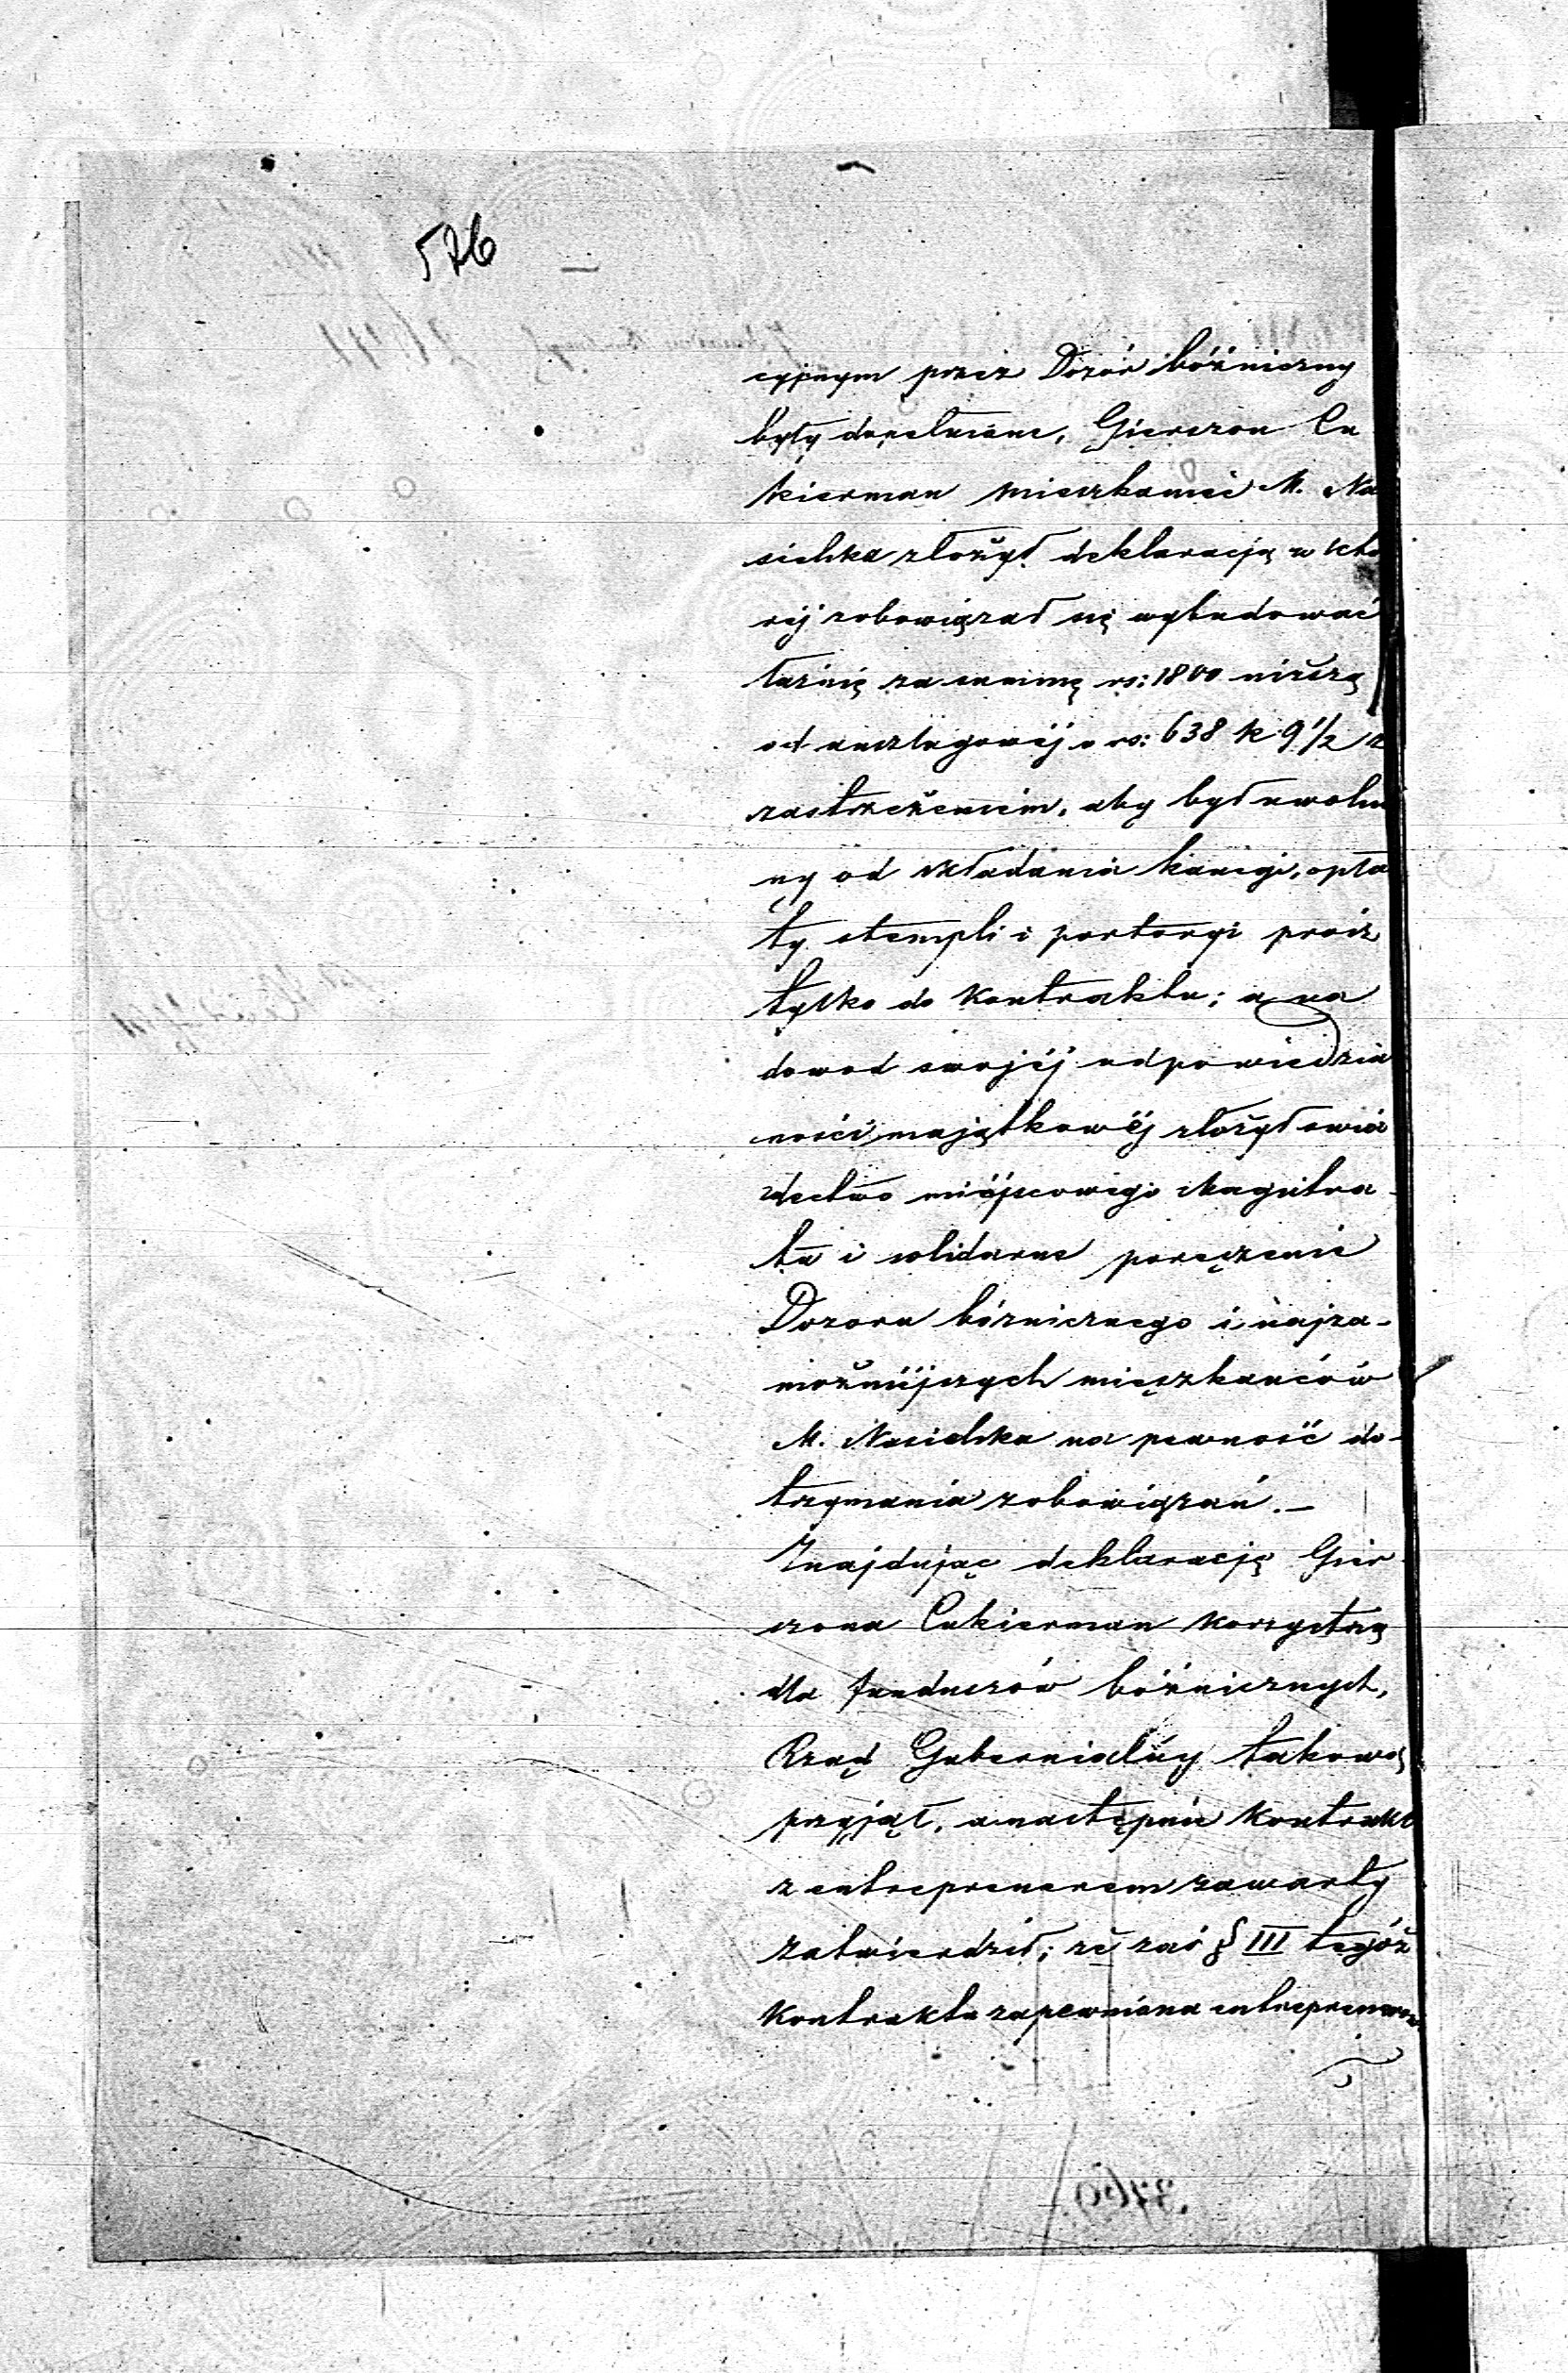 526
cyjnym przez Dozór bóżniczny
były dopełnione, Gierszon Cu
kierman mieszkaniec M. Na
sielska złożył deklaracją w któ
réj zobowiązał się wybudować
łaźnię za summę rs: 1800 niższą
od anszlagowéj o rs: 638 k 9 1/2 z
zastrzeżeniem, aby był uwolnio
ny od składania kaucyi, opła
ty stempli i portoryi prócz
tylko do Kontraktu; a na
dowod swojéj odpowiedzial
ności majątkowéj złożył świa
dectwo miéjscowego Magistra
tu i solidarne poręczenie
Dozoru bóźnicznego i najza-
możniéjszych mieszkańców
M. Nasielska na pewność do-
trzymania zobowiązań. —
Znajdując deklaracją Gier
szona Cukierman korzystną
dla funduszów bóźnicznych,
Rząd Gubernialny takową
przyjął, a następnie Kontrakt
z entreprenerem zawarty
zatwierdził; że zaś § III tegóż
Kontraktu zapewniona
3760